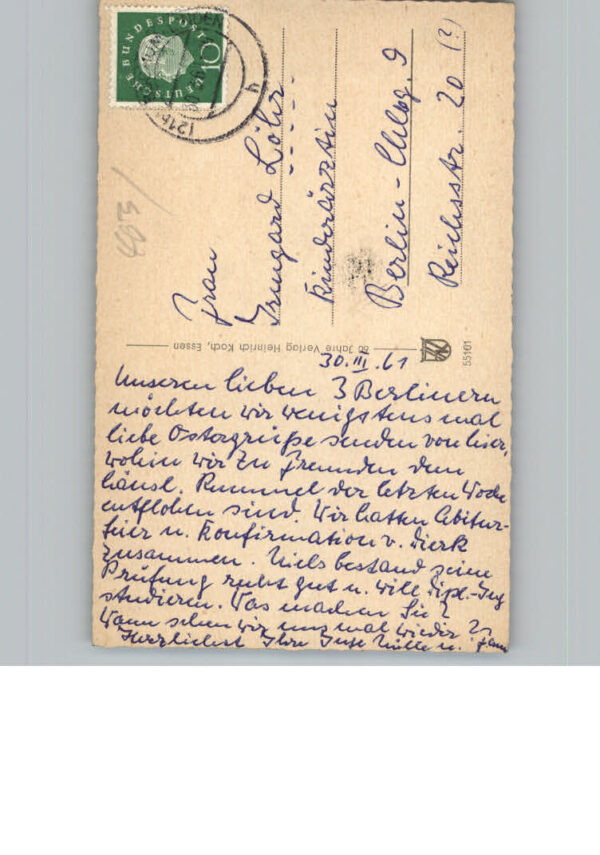 DEUTSCHE BUNDESPOST
10
h
Frau
Irmgard Löhr
Kinderärztin
Berlin - Chlbg. 9
Reichsstr. 20 (?)
60 Jahre Verlag Heinrich Koch, Essen
55101
30.III.61
Unseren lieben 3 Berlinern
möchten wir wenigstens mal
liebe Ostergrüße senden von hier,
wohin wir zu Freunden dem
häusl. Rummel der letzten Woche
entflohen sind. Wir hatten Abitur-
feier u. Konfirmation v. Dierk
zusammen. Niels bestand seine
Prüfung recht gut u. will Dipl.-Ing
studieren. Was machen Sie?
Wann sehen wir uns mal wieder?
Herzlichst Ihre u.